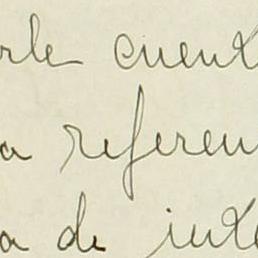 rle cuent
a referen
a de inte